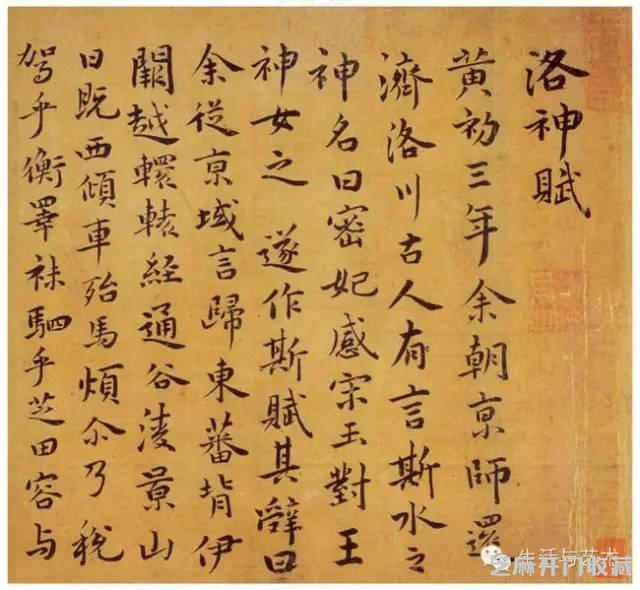 洛神賦
黄初三年余朝京師還
濟洛川古人有言斯水之
神名曰密妃感宋玉對王
神女之 遂作斯賦其辭曰
余從京域言歸東蕃背伊
闕越轘轅經通谷淩景山
日既西傾車殆馬煩尒乃税
駕乎衡睪秣駟乎芝田容与
生活与艺术
芝麻开门收藏